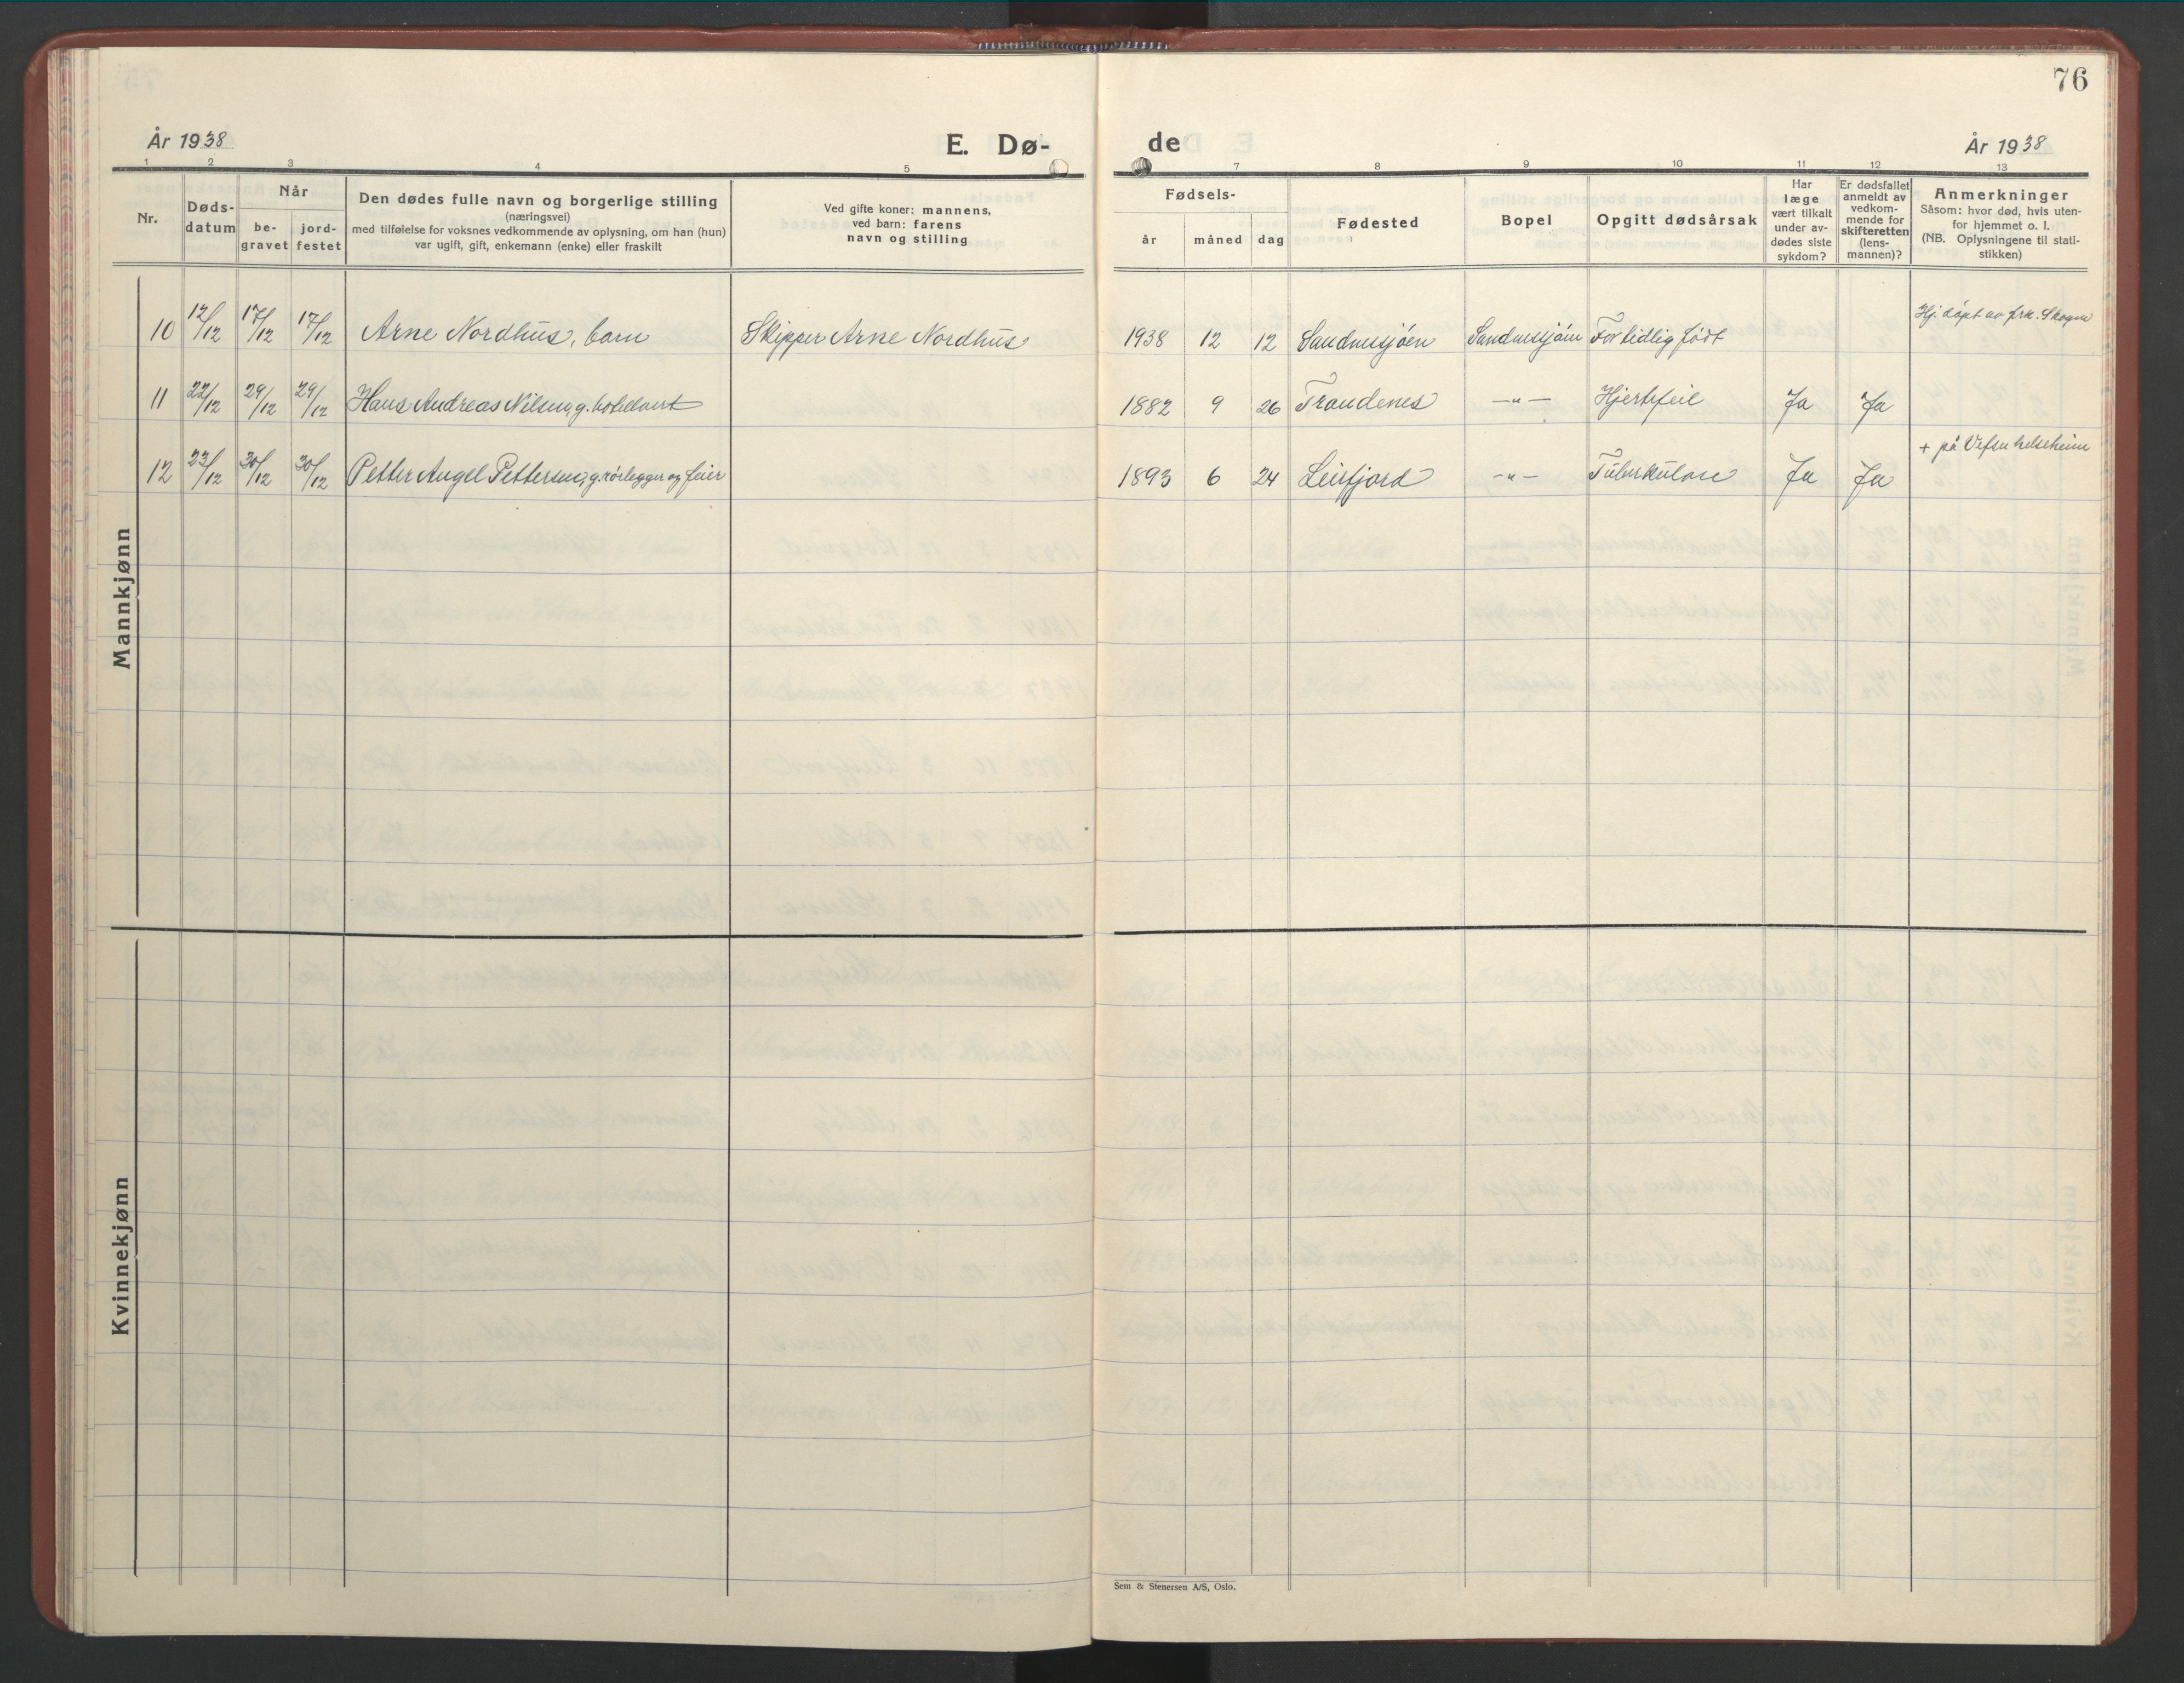 76
År 1938
E. Dø-
de
År 1938
1 2 3 4 5 7 8 9 10 11 12 13
Nr.
Døds-
datum
Når
be-
gravet
jord-
festet
Den dødes fulle navn og borgerlige stilling
(næringsvei)
med tilføielse for voksnes vedkommende av oplysning, om han (hun)
var ugift, gift, enkemann (enke) eller fraskilt
Ved gifte koner: mannens,
ved barn: farens
navn og stilling
Fødsels-
år måned dag
Fødested
Bopel
Opgitt dødsårsak
Har
læge
vært tilkalt
under av-
dødes siste
sykdom?
Er dødsfallet
anmeldt av
vedkom-
mende for
skifteretten
(lens-
mannen)?
Anmerkninger
Såsom: hvor død, hvis uten-
for hjemmet o. l.
(NB. Oplysningene til stati-
stikken)
Mannkjønn
10 12/12 17/12 17/12 Arne Nordhus, barn Skipper Arne Nordhus 1938 12 12 Sandnessjøen Sandnessjøen For tidlig født Hj. døpt av frk. Skogen
11 22/12 29/12 29/12 Hans Andreas Nilsen, g. hotellvert 1882 9 26 Trondenes -"- Hjertefeil Ja Ja
12 23/12 30/12 30/12 Petter Angel Pettersen, g. rørlegger og feier 1893 6 24 Leirfjord -"- Tuberkulose Ja Ja + på Vefsn helseheim
Kvinnekjønn
Sem & Stenersen A/S, Oslo.